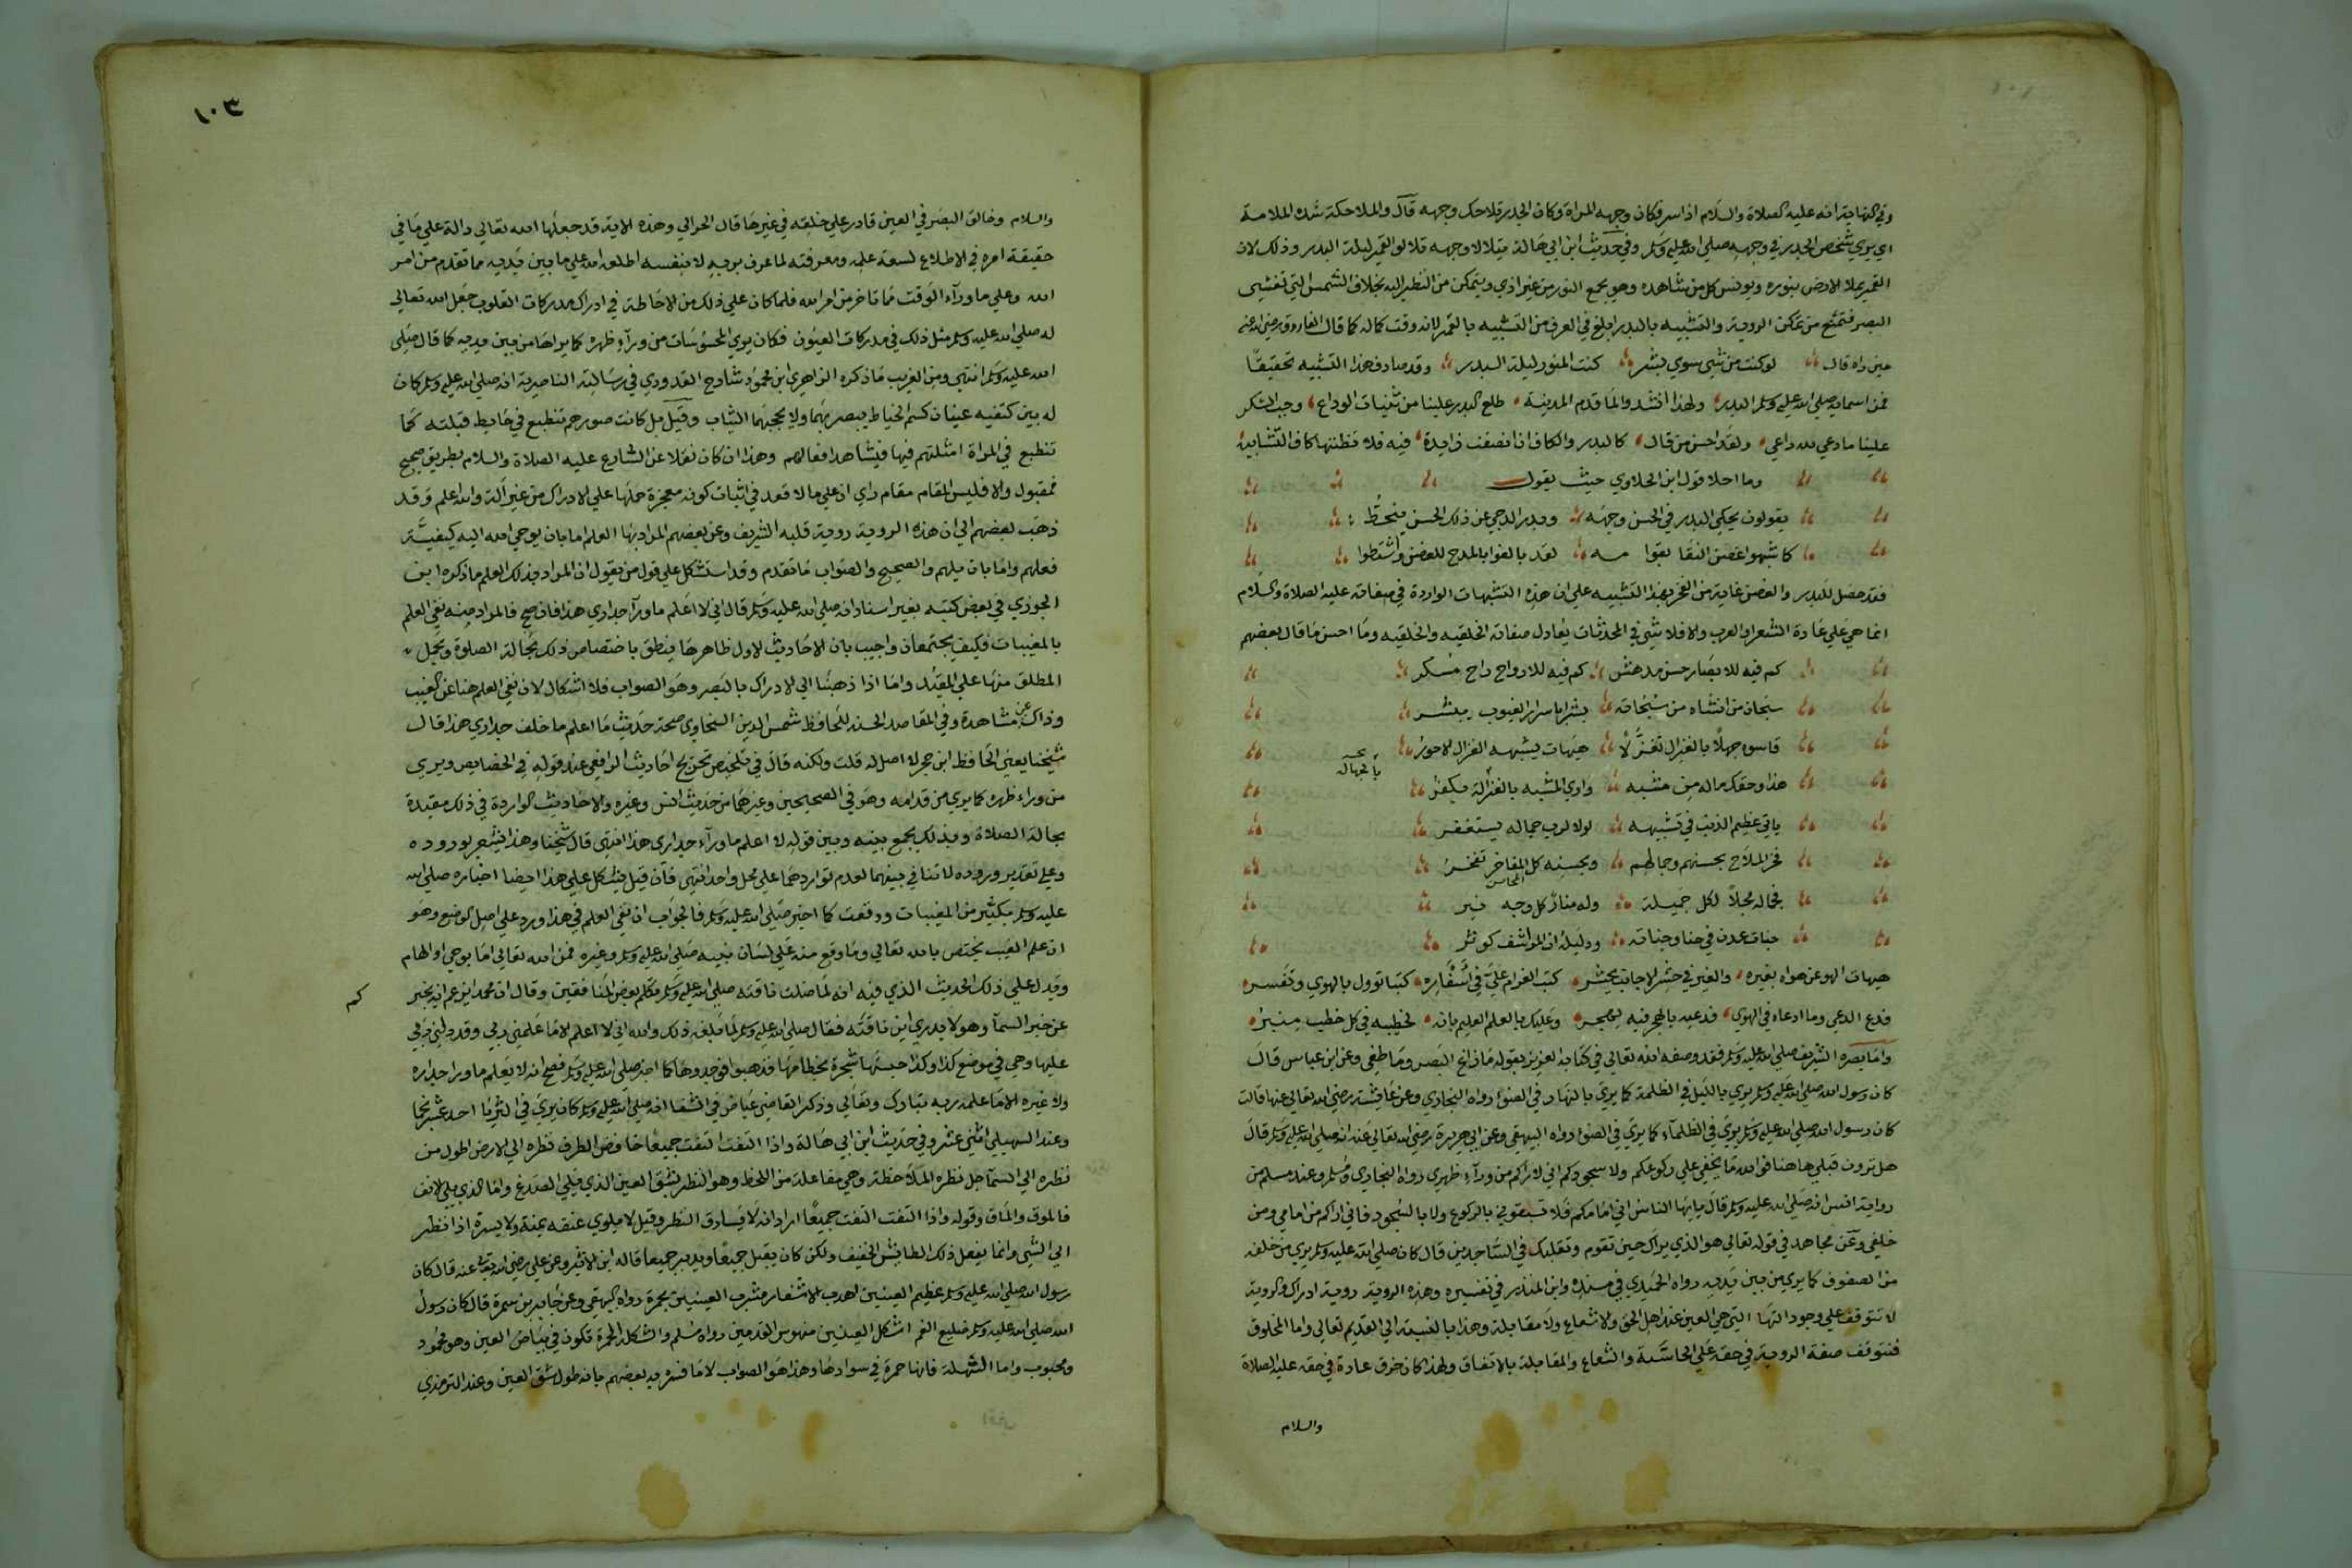 وفي النهاية انه عليه الصلاة والسلام اذا سر فكان وجهه المراة وكان الجدر تلاحك وجهه قال والملاحكة شدة الملامة
اي يري شخص الجدر في وجهه صلي الله عليه وسلم وفي حديث ابن ابي هالة يتلالا وجهه تلالو القمر ليلة البدر وذلك لان
القمر يملا الارض بنوره ويونس كل من شاهده وهو يجمع النور من غير اذي ويتمكن من النظر اليه بخلاف الشمس التي تغشي
البصر فتمنع من تمكن الروية والتشبيه بالبدر ابلغ في العرف من التشبيه بالقمر لانه وقت كماله كما قال الفاروق رضي الله عنه
حين راه قال لو كنت من شي سوي بشر كنت المنور ليلة البدر وقد صادف هذا التشبيه تحقيقا
فمن اسمايه صلي الله عليه وسلم البدر ولهذا انشدوا لما قدم المدينة طلع البدر علينا من ثنيات الوداع وجب الشكر
علينا ما دعي لله داعي ولقد احسن من قال كالبدر والكاف ان انصفت زايدة فيه فلا تظنها كاف التشابيه
وما احلا قول ابن الحلاوي حيث يقول
يقولون يحكي البدر في الحسن وجهه وبدر الدجي عن ذلك الحسن منحط
كما شبهوا غصن النقا بقوامه لقد بالغوا بالمدح للغصن واشتطوا
فقد حصل للبدر والغصن غاية من الفخر بهذا التشبيه علي ان هذه التشبيهات الواردة في صفاته عليه الصلاة والسلام
انما هي علي عادة الشعرا والعرب والا فلا شي في المحدثات يعادل صفاته الخلقيه والخلقيه وما احسن ما قال بعضهم
كم فيه للابصار حسن مدهش كم فيه للارواح راح مسكر
سبحان من انشاه من سبحاته بشرا باسرار الغيوب يبشر
قاسوه جهلا بالغزال تغزلا هيهات يشبهه الغزال الاحور
هذا وحقك ماله من مشبه واري المشبه بالغزالة يكفر
ياتي عظيم الذنب في تشبيهه لولا لرب جماله يستغفر
فخر الملاح بحسنهم وجمالهم وبحسنه كل المفاخر تفخر
المحاسن
فجماله مجلا لكل جميلة وله منار كل وجه نير
جنات عدن في جنا وجناته ودليله ان المراشف كوثر
هيهات الهو عن هواه بغيره والغير في حشر الاجانب يحشر كتب الغرام علي في اسفاره كتبا توول بالهوي وتفسر
فدع الدعي وما ادعاه في الهوي فدعيه بالهجر فيه يهجر وعليك بالعلم العليم بانه لخطيبه في كل خطب منبر
واما بصره الشريف صلي الله عليه وسلم فقد وصفه الله تعالي في كتابه العزيز بقوله ما زاغ البصر وما طغي وعن ابن عباس قال
كان رسول الله صلي الله عليه وسلم يري بالليل في الظلمة كما يري بالنهار في الضوء رواه البخاري وعن عايشة رضي الله تعالي عنها قالت
كان رسول الله صلي الله عليه وسلم يري في الظلماء كما يري في الضوء رواه البيهقي وعن ابي هريرة رضي الله تعالي عنه انه صلي الله عليه وسلم قال
هل ترون قبلتي هاهنا فوالله ما يخفي علي ركوعكم ولا سجودكم اني لاراكم من وراء ظهري رواه البخاري ومسلم وعند مسلم من
رواية انس انه صلي الله عليه وسلم قال يا ايها الناس اني امامكم فلا تسبقوني بالركوع ولا بالسجود فاني اراكم من امامي ومن
خلفي وعن مجاهد في قوله تعالي هو الذي يراك حين تقوم وتقلبك في الساجدين قال كان صلي الله عليه وسلم يري من خلفه
من الصفوف كما يري من بين يديه رواه الحميدي في مسنده وابن المنذر في تفسيره وهذه الروية روية ادراك والروية
لا تتوقف علي وجود التها التي هي العين عند اهل الحق ولا شعاع ولا مقابلة وهذا بالنسبة الي القديم تعالي واما المخلوق
فتتوقف صفة الروية في حقه علي الحاسة والشعاع والمقابلة بالاتفاق ولهذا كان خرق عادة في حقه عليه الصلاة
والسلام
١٠٣
والسلام وخالق البصر في العين قادر علي خلقه في غيرها قال الحرالي وهذه الاية قد جعلها الله تعالي دالة علي ما في
حقيقة امره في الاطلاع لسعة علمه ومعرفته لما عرف بربه لا بنفسه اطلعه الله علي ما بين يديه مما تقدم من امر
الله وعلي ما وراء الوقت مما تاخر من امر الله فلما كان علي ذلك من الاحاطة في ادراك مدركات القلوب جعل الله تعالي
له صلي الله عليه وسلم مثل ذلك في مدركات العيون فكان يري المحسوسات من وراء ظهره كما يراها من بين يديه كما قال صلي
الله عليه وسلم انتهي ومن الغريب ما ذكره الزاهري ابن محمود شارح القدوري في رسالته الناصرية انه صلي الله عليه وسلم كان
له بين كتفيه عينان كسم الخياط يبصر بهما ولا يحجبهما الثياب وقيل بل كانت صورهم تنطبع في حايط قبلته كما
تنطبع في المراة امثلتهم فيها فيشاهد افعالهم وهذا ان كان نقلا عن الشارع عليه الصلاة والسلام بطريق صحيح
فمقبول والا فليس المقام مقام راي ان علي ما لا قعد في اثبات كونه معجزة حملها علي الادراك من غير آلة والله اعلم وقد
ذهب بعضهم الي ان هذه الروية روية قلبه الشريف وعن بعضهم المراد بها العلم اما بان يوحي الله اليه كيفية
فعلهم واما بان يلهم والصحيح والصواب ما تقدم وقد استشكل علي قول من يقول ان المراد بذلك العلم ما ذكره ابن
الجوزي في بعض كتبه بغير اسناد انه صلي الله عليه وسلم قال اني لا اعلم ما ورآ جداري هذا فان صح فالمراد منه نفي العلم
بالمغيبات فكيف يجتمعان واجيب بان الاحاديث الاول ظاهرها ينطق باختصاص ذلك بحالة الصلوة ويحمل
المطلق منها علي المقيد واما اذا ذهبنا الي الادراك بالبصر وهو الصواب فلا اشكال لان نفي العلم هنا عن الغيب
وذاك عن مشاهدة وفي المقاصد الحسنة للحافظ شمس الدين السخاوي صحة حديث ما اعلم ما خلف جداري هذا قال
شيخنا يعني الحافظ ابن حجر لا اصل له قلت ولكنه قال في تلخيص تخريج احاديث الرافعي عند قوله في الخصايص ويري
من وراء ظهره كما يري من قدامه وهو في الصحيحين وغيرهما من حديث انس وغيره والاحاديث الواردة في ذلك مقيدة
بحالة الصلاة وبذلك يجمع بينه وبين قوله لا اعلم ما ورآء جداري هذا انتهي قال شيخنا وهذا يشعر بوروده
وعلي تقدير وروده لا تنافي بينهما لعدم تواردهما علي محل واحد انتهي فان قيل يشكل علي هذا ايضا اخباره صلي الله
عليه وسلم بكثير من المغيبات ووقعت كما اخبر صلي الله عليه وسلم فالجواب ان نفي العلم في هذا ورد علي اصل الوضع وهو
ان علم الغيب يختص بالله تعالي وما وقع منه علي لسان نبيه صلي الله عليه وسلم وغيره فمن الله تعالي اما بوحي او الهام
وقد دل علي ذلك الحديث الذي فيه انه لما ضلت ناقته صلي الله عليه وسلم تكلم بعض المنافقين وقال ان محمدا يزعم انه يخبر
كم
عن خبر السمآ وهو لا يدري اين ناقته فقال صلي الله عليه وسلم لما بلغه ذلك والله اني لا اعلم الا ما علمني ربي وقد دلني ربي
عليها وهي في موضع كذا وكذا حبستها شجرة بخطامها فذهبوا فوجدوها كما اخبر صلي الله عليه وسلم فصح انه لا يعلم ما ورا جداره
ولا غيره الا ما علمه ربه تبارك وتعالي وذكر القاضي عياض في الشفا انه صلي الله عليه وسلم كان يري في الثريا احد عشر نجما
وعند السهيلي اثني عشر وفي حديث ابن ابي هالة واذا التفت التفت جميعا خافض الطرف نظره الي الارض اطول من
نظره الي السمآ جل نظره الملاحظة وهي مفاعلة من اللحظ وهو النظر بشق العين الذي يلي الصدغ واما الذي يلي الانف
فالموق والماق وقوله واذا التفت التفت جميعا اراد انه لا يسارق النظر وقيل لا يلوي عنقه يمنة ولا يسرة اذا نظر
الي الشي وانما يفعل ذلك الطايش الخفيف ولكن كان يقبل جميعا ويدبر جميعا قاله ابن الاثير وعن علي رضي الله تعالي عنه قال كان
رسول الله صلي الله عليه وسلم عظيم العينين اهدب الاشفار مشرب العينين بحمرة رواه البيهقي وعن جابر بن سمرة قال كان رسول
الله صلي الله عليه وسلم ضليع الفم اشكل العينين منهوس القدمين رواه مسلم والشكلة الحمرة تكون في بياض العين وهو محمود
ومحبوب واما الشهلة فانها حمرة في سوادها وهذا هو الصواب لا ما فسره به بعضهم بانه طول شق العين وعند الترمذي